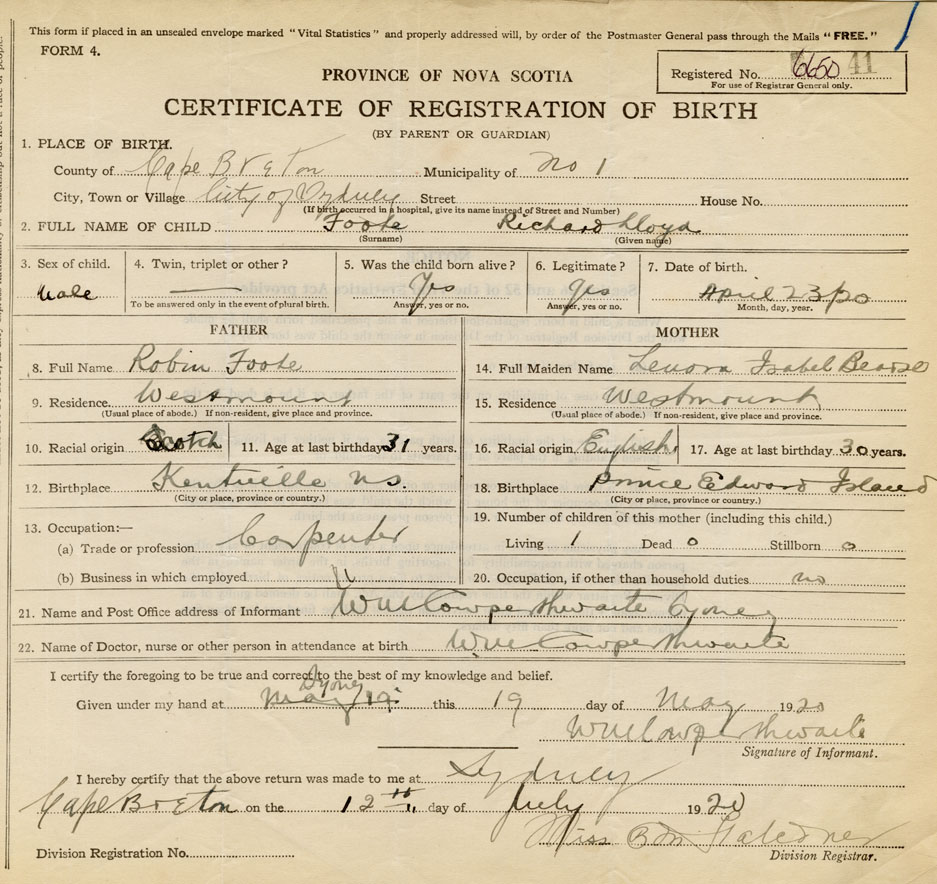 This form if placed in an unsealed envelope marked "Vital Statistics" and properly addressed will, by order of the Postmaster General pass through the Mails "FREE."
FORM 4.
PROVINCE OF NOVA SCOTIA
Registered No. 6650 41
For use of Registrar General only.
CERTIFICATE OF REGISTRATION OF BIRTH
(BY PARENT OR GUARDIAN)
1. PLACE OF BIRTH.
County of Cape Breton Municipality of No 1
City, Town or Village City of Sydney Street House No.
(If birth occurred in a hospital, give its name instead of Street and Number)
2. FULL NAME OF CHILD Foote Richard Lloyd
(Surname) (Given name)
3. Sex of child. 4. Twin, triplet or other? 5. Was the child born alive? 6. Legitimate? 7. Date of birth.
Male Yes Yes April 23/20
To be answered only in the event of plural birth. Answer, yes or no. Answer, yes or no. Month, day, year.
FATHER
8. Full Name Robin Foote
9. Residence. Westmount
(Usual place of abode.) If non-resident, give place and province.
10. Racial origin Scotch 11. Age at last birthday 31 years.
12. Birthplace Kentville NS
(City or place, province or country.)
13. Occupation:—
(a) Trade or profession Carpenter
(b) Business in which employed
MOTHER
14. Full Maiden Name Lenora Isabel
15. Residence Westmount
(Usual place of abode.) If non-resident, give place and province.
16. Racial origin English 17. Age at last birthday 30 years.
18. Birthplace Prince Edward Island
(City or place, province or country.)
19. Number of children of this mother (including this child.)
Living 1 Dead 0 Stillborn 0
20. Occupation, if other than household duties no
21. Name and Post Office address of Informant Cowperthwaite Sydney
22. Name of Doctor, nurse or other person in attendance at birth Cowperthwaite
I certify the foregoing to be true and correct to the best of my knowledge and belief.
Sydney
Given under my hand at May 19 this 19 day of May 1920
Cowperthwaite
Signature of Informant.
I hereby certify that the above return was made to me at Sydney
Cape Breton on the 12th day of July 1920
Miss
Division Registration No. Division Registrar.